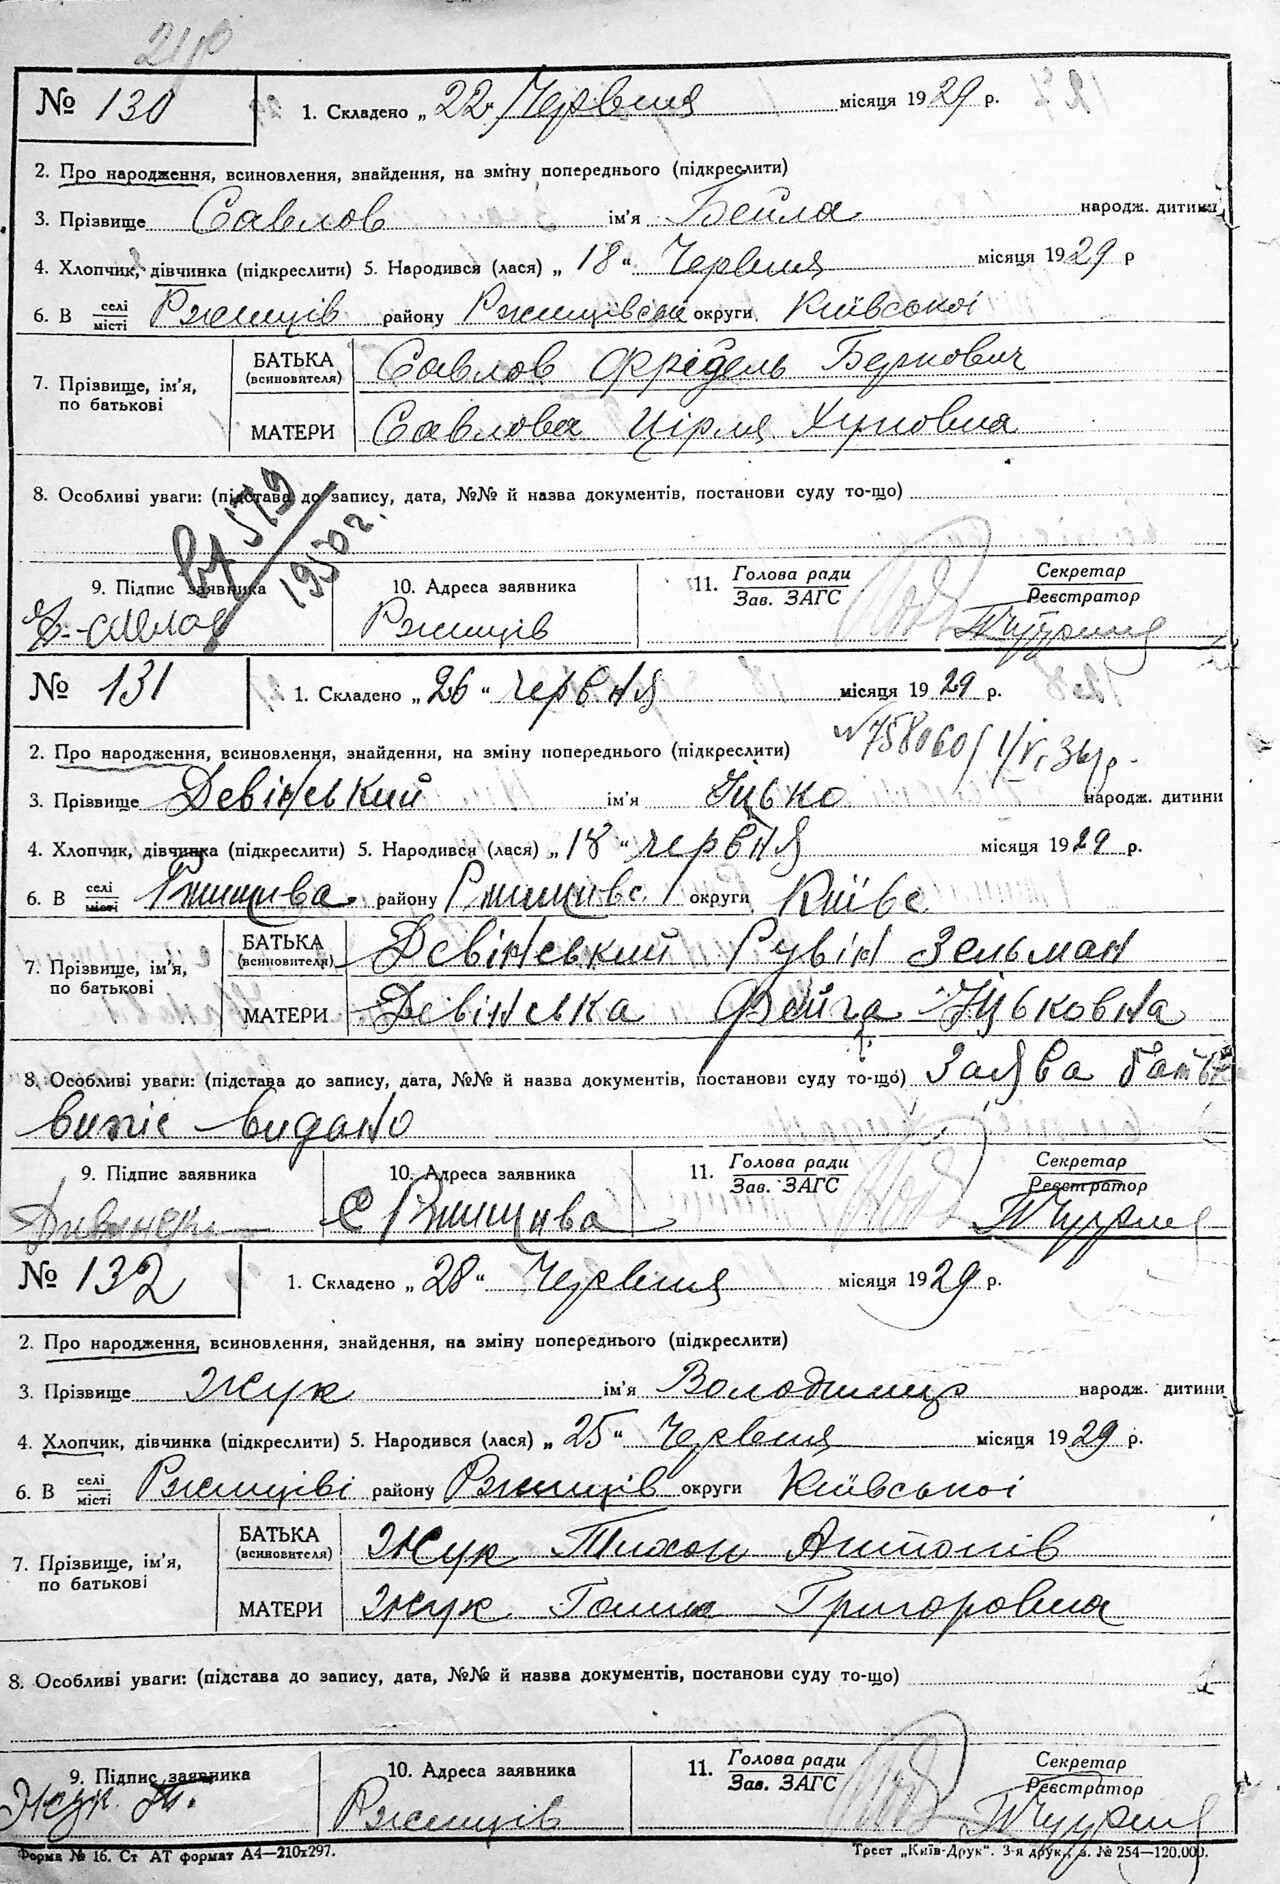 № 130 1. Складено „ 22 " Червня місяця 19 29 р.
2. Про народження, всиновлення, знайдення, на зміну попереднього (підкреслити)
3. Прізвище Савлов ім'я Бейла народж. дитини
4. Хлопчик, дівчинка (підкреслити) 5. Народився (лася) „ 18 " Червня місяця 19 29 р
6. В селі місті Ржищів району Ржищівськ округи Київської
7. Прізвище, ім'я, по батькові БАТЬКА (всиновителя) Савлов Фрідель Беркович
МАТЕРИ Савлова Цірля
8. Особливі уваги: (підстава до запису, дата, №№ й назва документів, постанови суду то-що)
1950 г.
9. Підпис заявника 10. Адреса заявника 11. Голова ради Зав. ЗАГС Секретар Реєстратор
Ржищів
№ 131 1. Складено „ 26 " червня місяця 19 29 р.
2. Про народження, всиновлення, знайдення, на зміну попереднього (підкреслити)
3. Прізвище Девінський ім'я Іцько народж. дитини
4. Хлопчик, дівчинка (підкреслити) 5. Народився (лася) „ 18 " червня місяця 19 29 р.
6. В селі місті Ржищива району Ржищивс. округи Київс
7. Прізвище, ім'я, по батькові БАТЬКА (всиновителя) Девінський Рувін Зельман
МАТЕРИ Девінська Фейга Іцьковна
8. Особливі уваги: (підстава до запису, дата, №№ й назва документів, постанови суду то-що) Заява батька
випис видано
9. Підпис заявника 10. Адреса заявника 11. Голова ради Зав. ЗАГС Секретар Реєстратор
с Ржищива
№ 132 1. Складено „ 28 " Червня місяця 19 29 р.
2. Про народження, всиновлення, знайдення, на зміну попереднього (підкреслити)
3. Прізвище Жук ім'я Володимир народж. дитини
4. Хлопчик, дівчинка (підкреслити) 5. Народився (лася) „ 25 " Червня місяця 19 29 р.
6. В селі місті Ржищіві району Ржищів округи Київської
7. Прізвище, ім'я, по батькові БАТЬКА (всиновителя) Жук Тихон Антонів
МАТЕРИ Жук Ганна Григоровна
8. Особливі уваги: (підстава до запису, дата, №№ й назва документів, постанови суду то-що)
9. Підпис заявника 10. Адреса заявника 11. Голова ради Зав. ЗАГС Секретар Реєстратор
Жук. Т. Ржищів
Форма № 16. Ст АТ формат А4—210х297. Трест „Київ-Друк". 3-я друк., з. № 254—120.000.